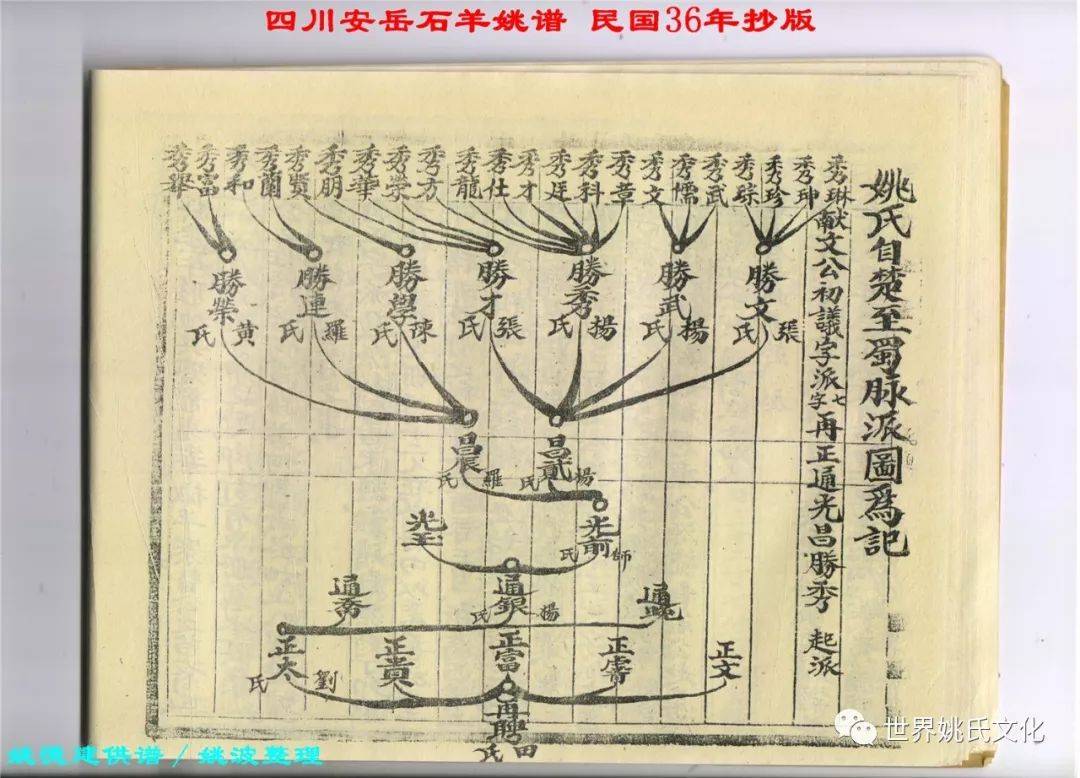 四川安岳石羊姚谱 民国36年抄版
姚氏自楚至蜀脉派圖爲記
献文公初議字派七字再正通光昌勝秀 起派
秀琳
秀珅
秀珍
秀琮
秀武
秀儒
秀文
秀章
秀科
秀廷
秀才
秀仕
秀龍
秀方
秀荣
秀華
秀朋
秀賢
秀蘭
秀和
秀富
秀舉
勝文 張氏
勝武 楊氏
勝秀 楊氏
勝才 張氏
勝學 陳氏
勝連 羅氏
勝榮 黄氏
昌貳 楊氏
昌宸 羅氏
光前 師氏
光玉
通銀 楊氏
正文
正富
正貴
正太 劉氏
再聘 田氏
世界姚氏文化
姚俊建供谱/姚波整理